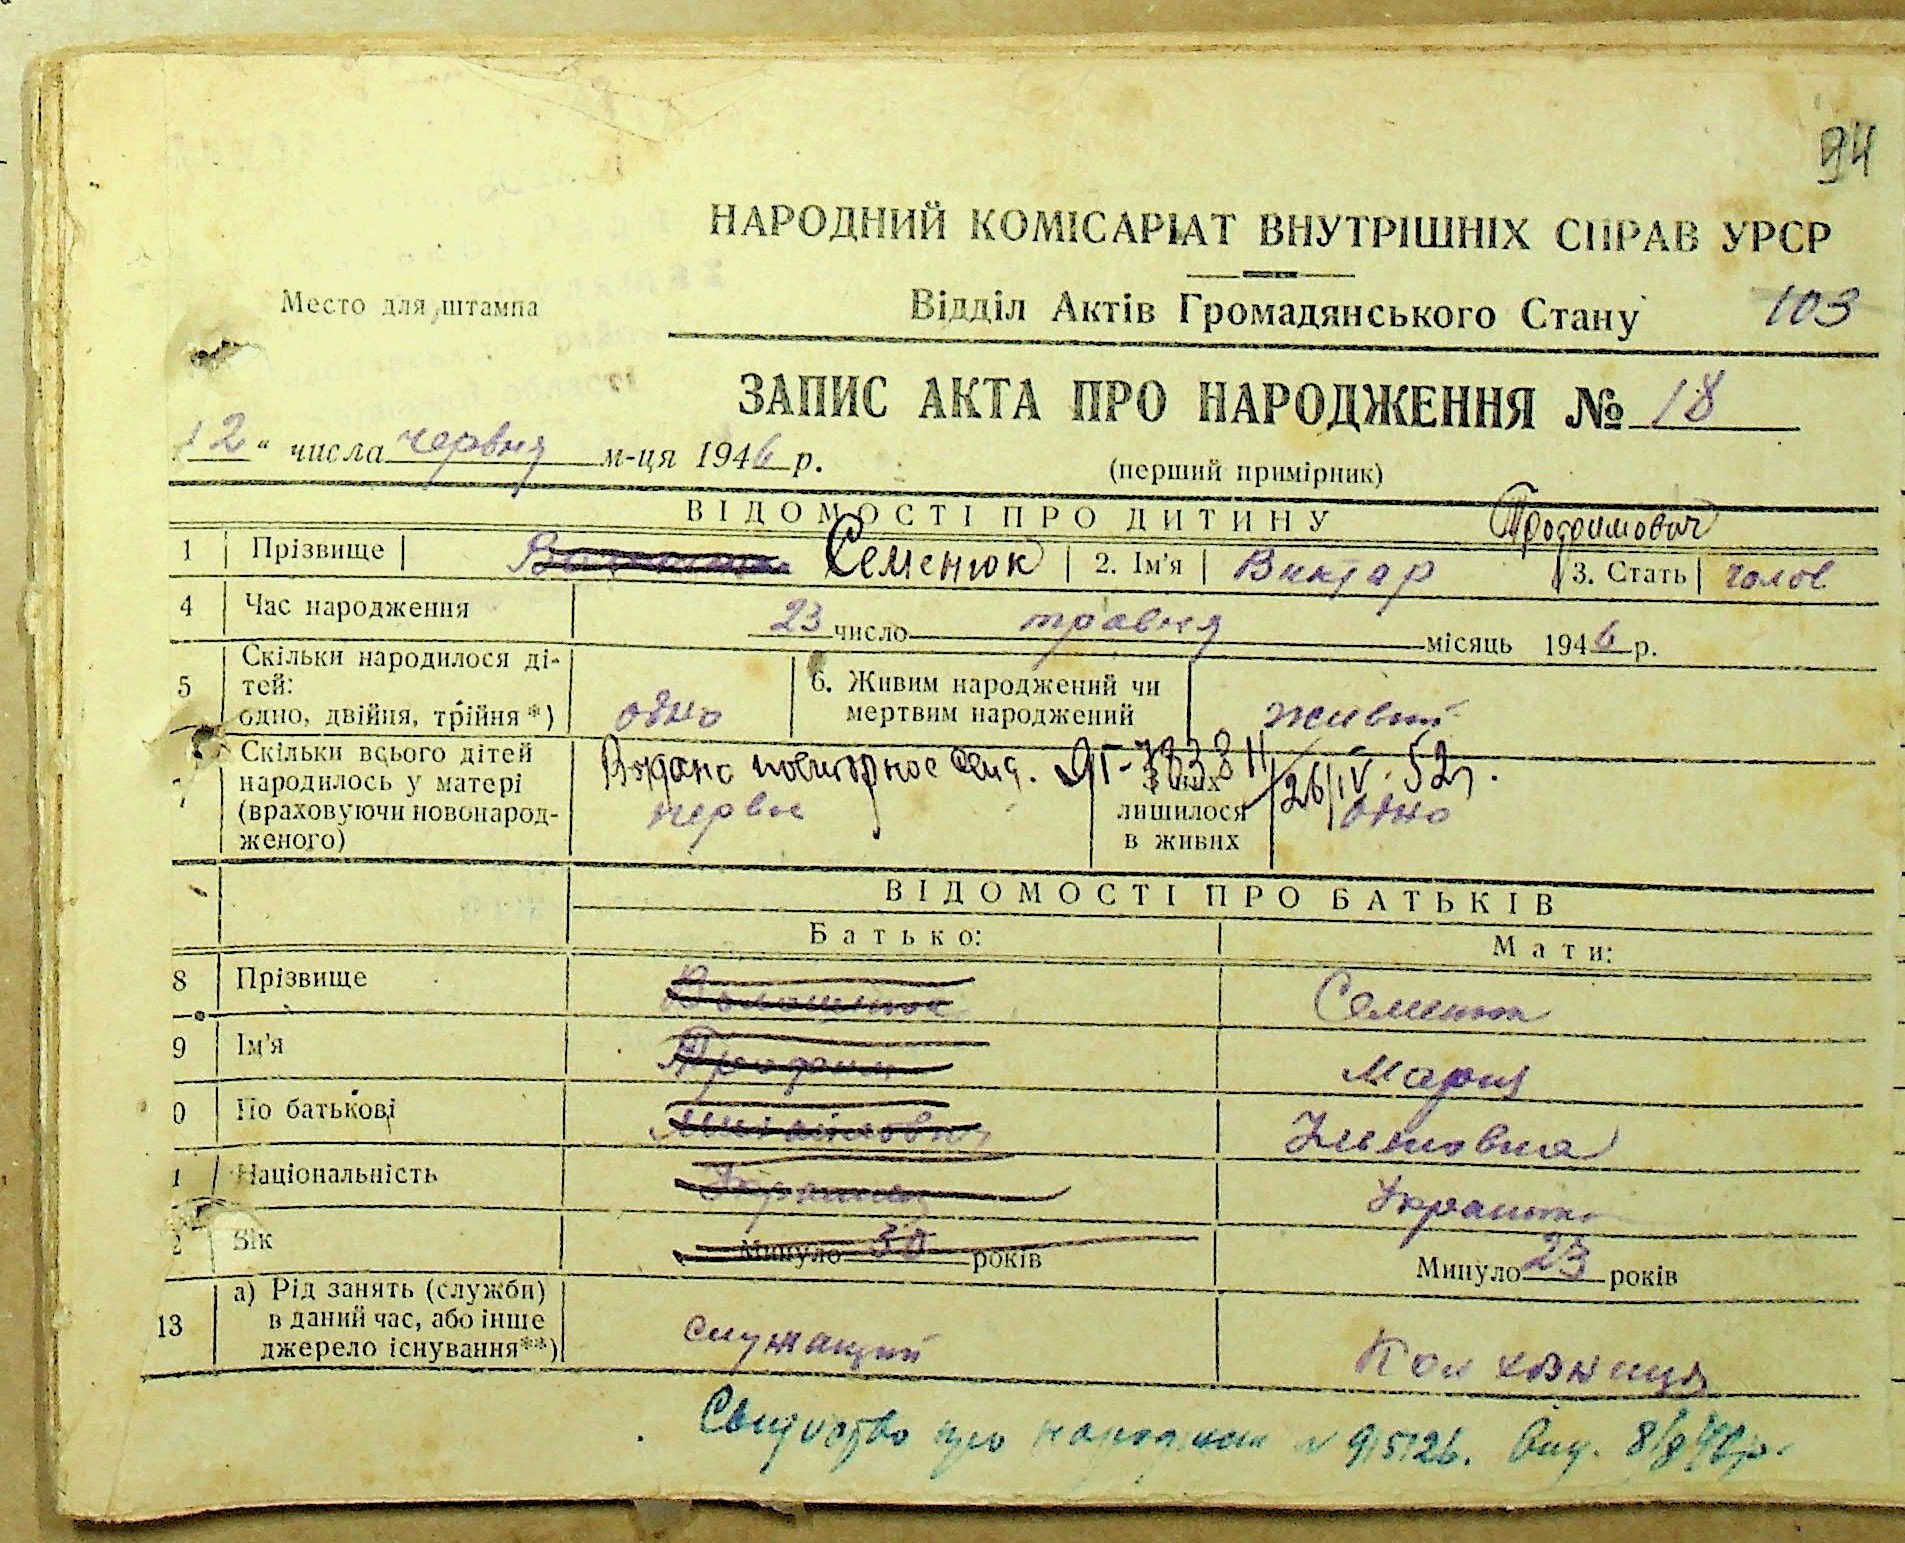 94
НАРОДНИЙ КОМІСАРІАТ ВНУТРІШНІХ СПРАВ УРСР
Место для штампа
Відділ Актів Громадянського Стану 103
ЗАПИС АКТА ПРО НАРОДЖЕННЯ № 18
12 " числа червня м-ця 1946 р.
(перший примірник)
ВІДОМОСТІ ПРО ДИТИНУ
Трофимович
1 Прізвище Семенюк 2. Ім'я Виктар 3. Стать чолов
4 Час народження 23 число травня місяць 1946 р.
5 Скільки народилося дітей: одно, двійня, трійня *) одно 6. Живим народжений чи мертвим народжений живий
Видано повторное свид. 26/IV-52г.
7 Скільки всього дітей народилось у матері (враховуючи новонародженого) первое З них лишилося в живих одно
ВІДОМОСТІ ПРО БАТЬКІВ
Батько: Мати:
8 Прізвище Семенюк
9 Ім'я Трофим Мария
0 По батькові Михайлович
1 Національність Українка
2 Вік Минуло 30 років Минуло 23 років
13 а) Рід занять (служби) в даний час, або інше джерело існування**) служащий Колхозниця
Свидоцтво про народжен № 915126.